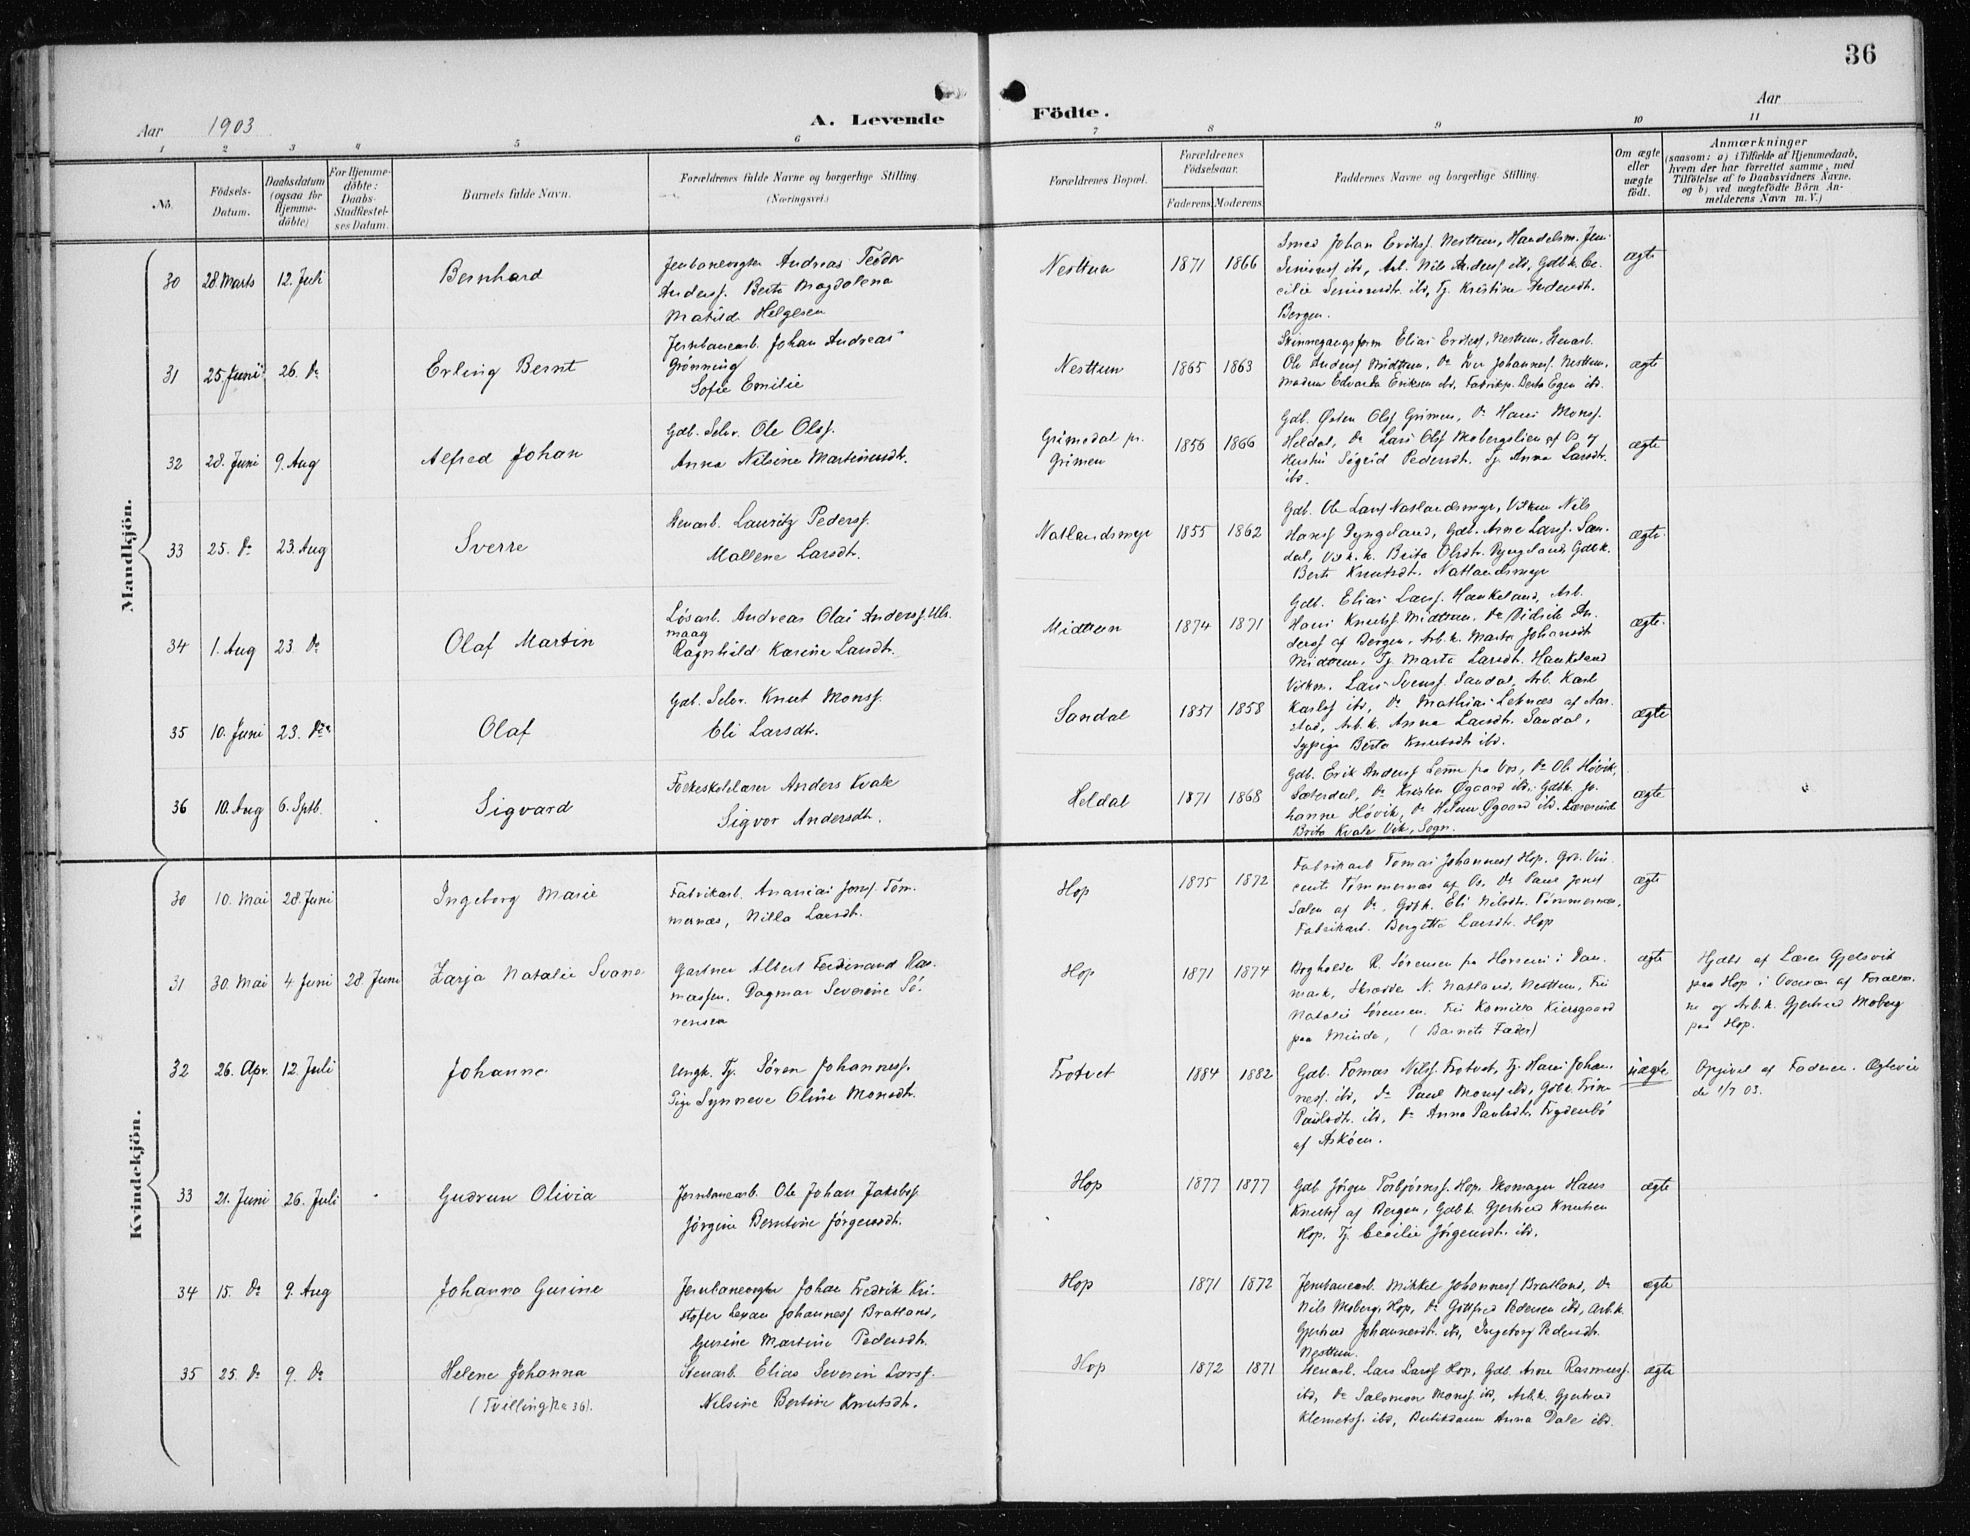 36
Aar 1903
A. Levende Födte.
Aar
1 2 3 4 5 6 7 8 9 10 11
No.
Födsels-Datum.
Daabsdatum (ogsaa for Hjemme-döbte)
For Hjemme-döbte: Daabs-Stadfæstel-ses Datum.
Barnets fulde Navn.
Forældrenes fulde Navne og borgerlige Stilling. (Næringsvei.)
Forældrenes Bopæl.
Forældrenes Födselsaar.
Faderens. Moderens.
Faddernes Navne og borgerlige Stilling.
Om ægte eller uægte födt.
Anmærkninger
(saasom: a) i Tilfælde af Hjemmedaab,
hvem der har forrettet samme, med
Tilföielse af to Daabsvidners Navne,
og b) ved uægtefödte Börn An-
melderens Navn m. V.)
Mandkjön.
30 28. Marts 12. Juli Bernhard
Jernbanevogter Andreas Teodor
Anderss. Berta Magdalena
Matilde Helgesen
Nesttun 1871 1866
Smed Johan Erikss. Nesttun, Handelsm. Jens
Simonss ibd, Arb. Nils Anderss ibd, Gdbk. Ce-
cilie Simonsdtr. ibd, Tj. Kristine Andersdtr.
Bergen.
ægte
31 25. Juni 26. Do Erling Bernt
Jernbanearb. Johan Andreas
Grönning
Sofie Emilie
Nesttun 1865 1863
Skinnegangsform Elias Erikss, Nesttun, Stenarb.
Ole Anderss Midttun, Do Iver Johanness. Nesttun,
Madam Edvarda Eriksen ibd, Fabrikp. Berta Egen ibd.
ægte
32 28. Juni 9. Aug Alfred Johan
Gdb. Selv. Ole Olss.
Anna Nilsine Martinusdtr.
Grimedal pr.
Grimen
1856 1866
Gdb. Østen Olss Grimen, Do Hans Monss.
Heldal, Do Lars Olss Mobergslien af Os og
Hustru Sigrid Pedersdtr. Tj. Anna Larsdtr.
ibd.
ægte
33 25. Do 23. Aug Sverre
Stenarb. Lauritz Pederss.
Mallene Larsdtr.
Natlandsmyr 1855 1862
Gdb. Ole Larss Natlandsmyr, Nils
Hanss Dyngeland, Gdb. Arne Larss. San-
dal, Brita Olsdtr. Dyngeland, Gdbk.
Berta Knutsdtr. Natlandsmyr
ægte.
34 1. Aug 23. Do Olaf Martin
Løsarb. Andreas Olai Anderss. Uls-
maag
Ragnhild Karine Larsdtr.
Midttun 1874 1871
Gdb. Elias Larss. Haukeland, Arb.
Hans Knutss Midttun, Do Didrik An-
derss af Bergen, Arb.k. Marta Johansdtr
Midttun, Tj. Marta Larsdtr. Haukeland
ægte.
35 10. Juni 23. Do Olaf
Gdb. Selv. Knut Monss.
Eli Larsdtr.
Sandal 1851 1858
Lars Svenss. Sandal, Arb. Karl
Karlss ibd, Do Mathias Leknæs af Aar-
stad, Arb.k. Anna Larsdtr. Sandal,
Sypige Berta Knutsdtr ibd.
ægte
36 10. Aug 6. Sptb. Sigvard
Folkeskolelærer Anders Kvale
Sigvor Andersdtr.
Heldal 1871 1868
Gdb. Erik Anderss Lemme fra Vos, Do Ole Høvik,
Sæterdal, Do Kristen Øgaard ibd, Gdbk. Jo-
hanne Høvik, Do Helene Øgaard ibd. Lærerinde
Brita Kvale Vik, Sogn.
ægte
Kvindekjön.
30 10. Mai 28. Juni Ingeborg Marie
Fabrikarb. Ananias Jonss. Töm-
mernæs, Nilla Larsdtr.
Hop 1875 1872
Fabrikarb Tomas Johanness Hop. Gdb. Vin-
cents Tömmernæs af Os, Do Paul Jonss
Salen af Do, Gdbk. Eli Nilsdtr. Tömmernæs,
Fabrikarb. Bergitte Larsdtr. Hop
ægte
31 30. Mai 4. Juni 28. Juni Zarja Natalie Svane
Gartner Albert Ferdinand Ras-
mussen. Dagmar Severine Sö-
rensen
Hop 1871 1874
Bogholder R. Sørensen fra Horsens i Dan-
mark, Skrædder N. Natland, Nesttun, Fru
Natalie Sørensen. Fru Kamilla Kiersgaard
paa Minde, (Barnets Fader)
ægte
Hjdbt af Lærer Gjelsvik
paa Hop i Overvær af Forældre-
ne og Arb.k. Gjertrud Moberg
paa Hop.
32 26. Apr. 12. Juli Johanne
Ungk. Tj. Sören Johanness.
Pige Synneve Oline Monsdtr.
Frotvet 1884 1882
Gdb. Tomas Nilss. Frotvet, Tj. Hans Johan-
ness. ibd, Do Paul Monss ibd, Gdbk. Trine
Paulsdtr. ibd, Do Anna Paulsdtr. Frydenbö
af Askøen.
uægte
Opgivet af Faderen. Ægtevie-
de 1/7 03.
33 21. Juni 26. Juli Gudrun Olivia
Jernbanearb. Ole Johan Jakobss.
Jörgine Berntine Jörgensdtr.
Hop 1877 1877
Gdb. Jörgen Torbjörnss. Hop, Skomager Hans
Knutss af Bergen, Gdbk. Gjertrud Knutsen
Hop, Tj. Cecilie Jörgensdtr. ibd.
ægte
34 15. Do 9. Aug Johanna Gurine
Jernbanevogter Johan Fredrik Kri-
stofer Johanness Bratland,
Gurine Martine Pedersdtr.
Hop 1871 1872
Jernbanearb. Mikkel Johanness Bratland, Do
Nils Moberg, Hop, Do Gottfred Pedersen ibd, Arb.k.
Gjertrud Johannesdtr. ibd, Ingeborg Pedersdtr.
Nesttun.
ægte
35 25. Do 9. Do Helene Johanna
(Tvilling No 36).
Stenarb. Elias Severin Larss.
Nilsine Bertine Knutsdtr.
Hop 1872 1871
Stenarb. Lars Larss Hop, Gdb. Arne Rasmuss.
ibd, Do Salomon Monss. ibd, Arb.k. Gjertrud
Klemetss. ibd, Butikdame Anna Dale ibd.
ægte